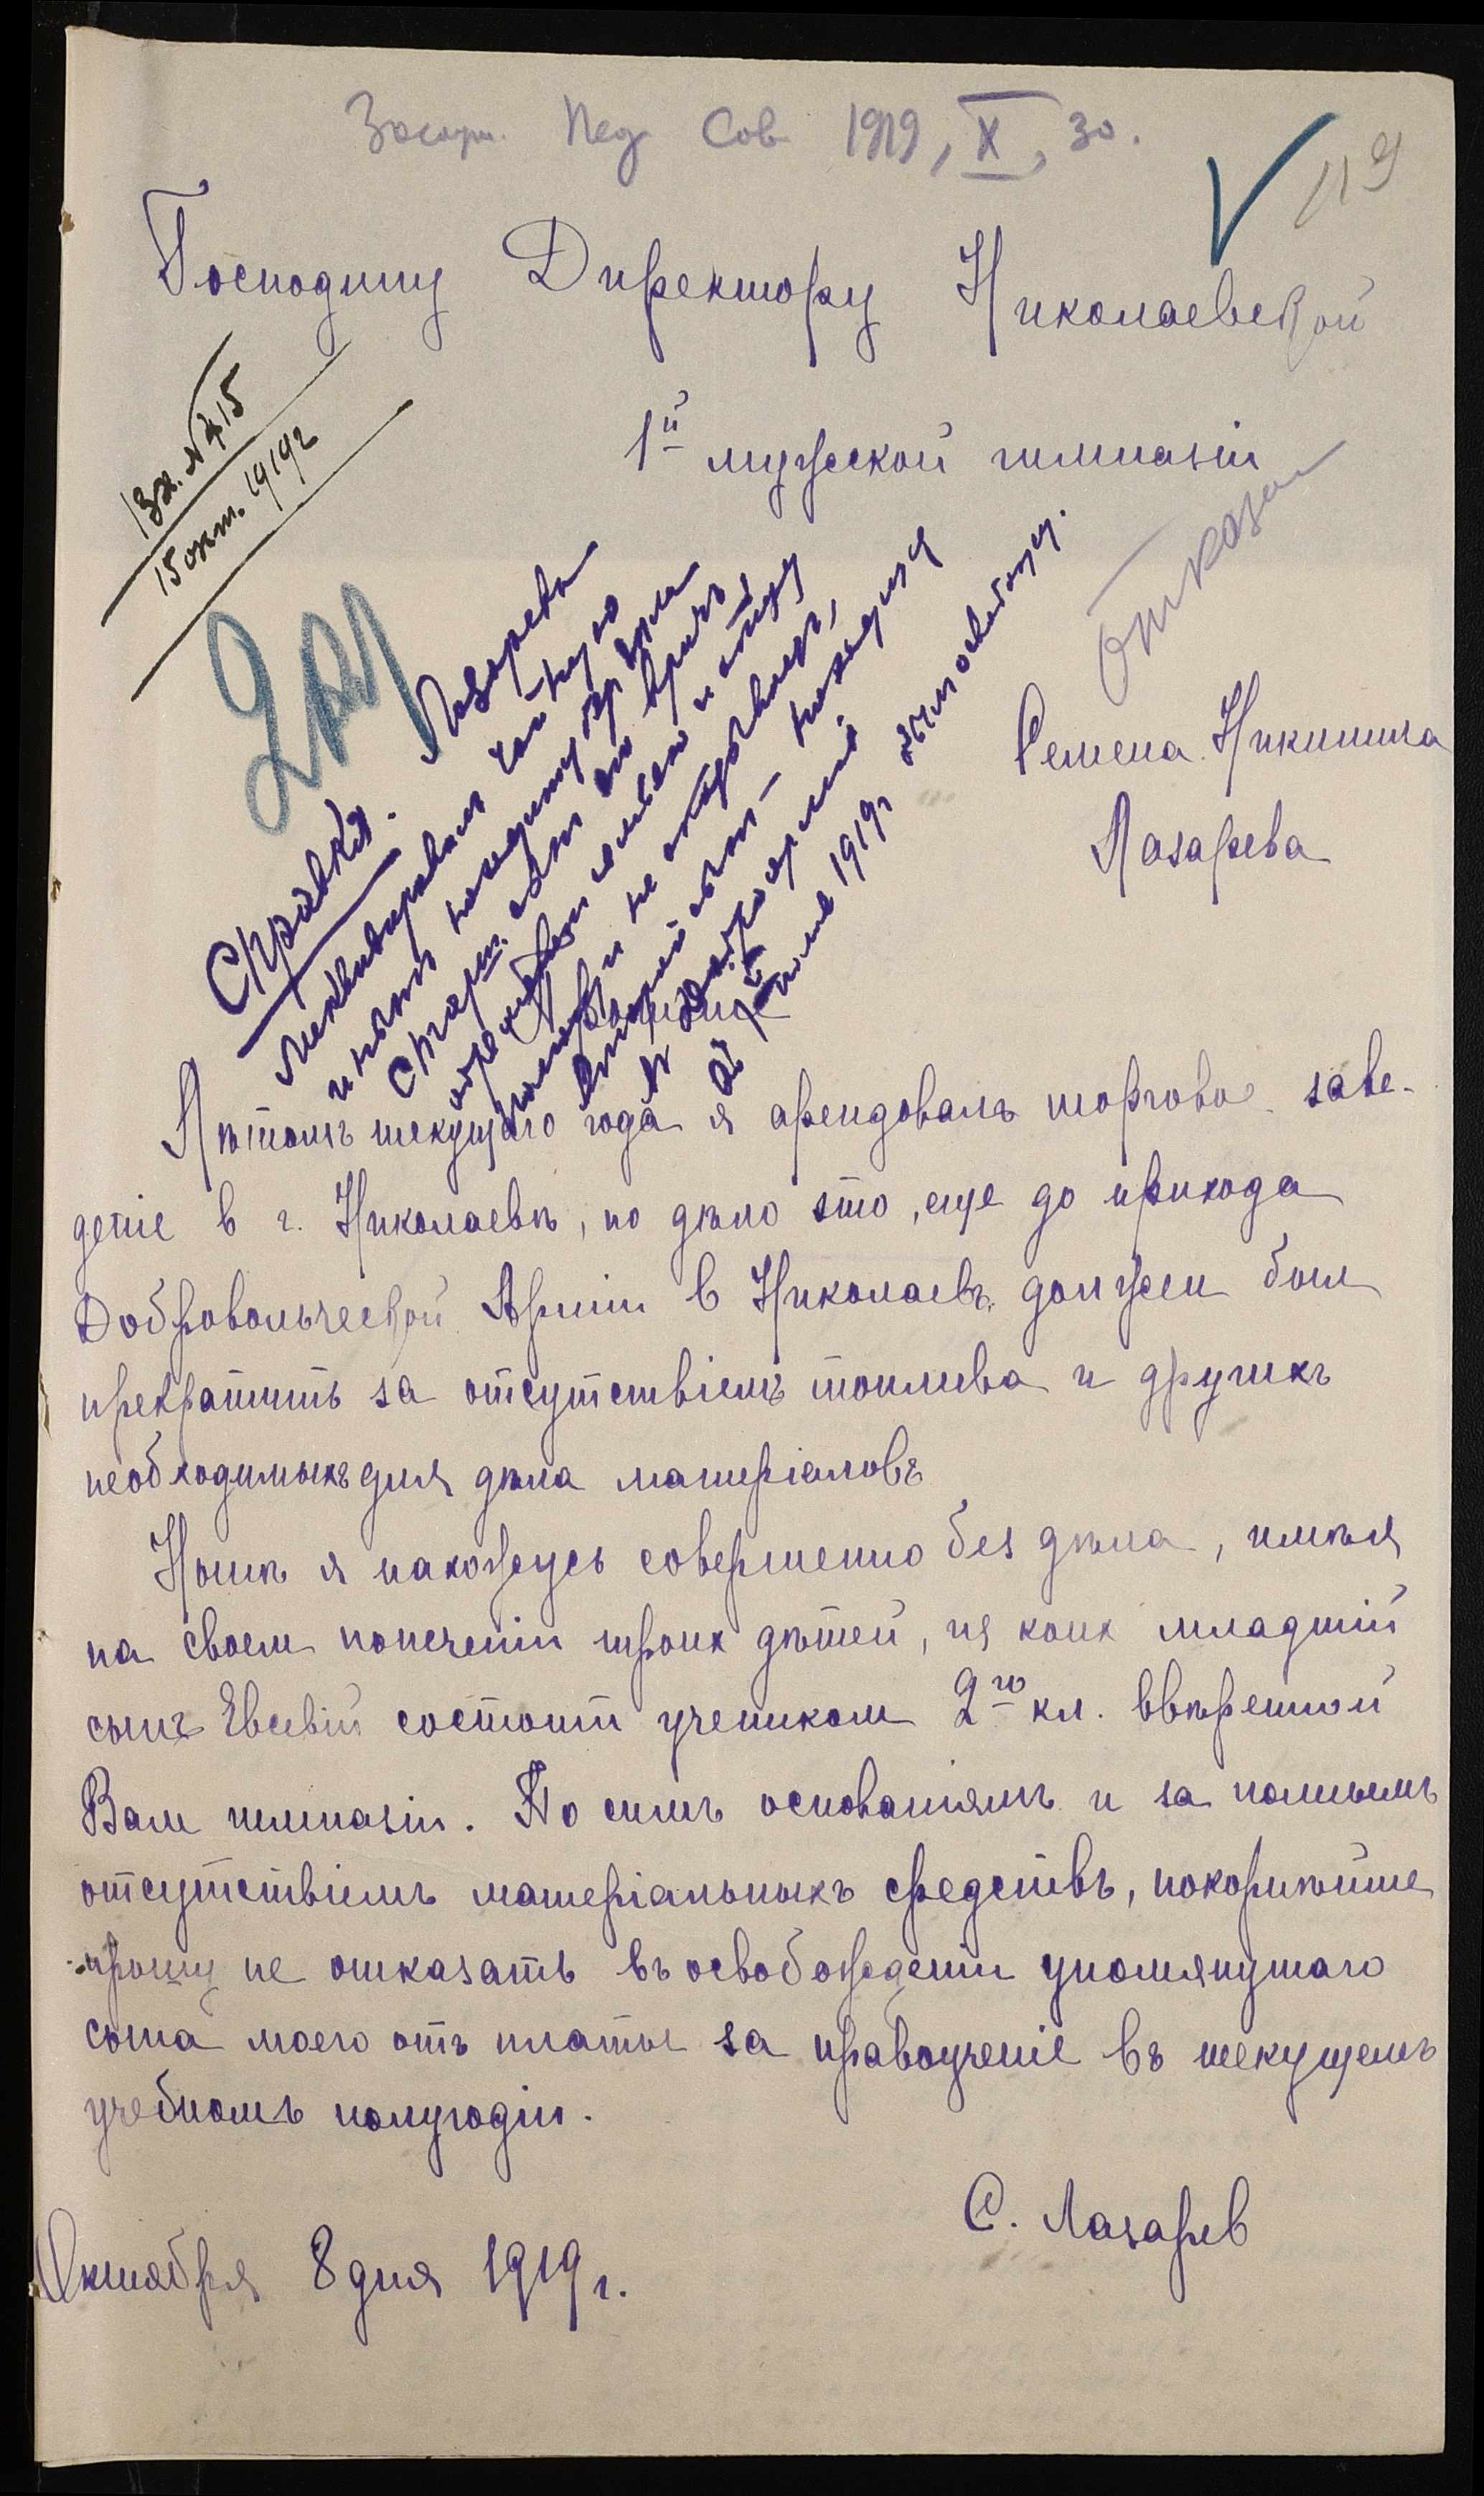 Засѣд. Пед Сов 1919, X, 30.
119
Господину Директору Николаевской
1й мужской гимназіи
Вх. № 415
15 окт. 1919г
отказать
Семена Никитича
Лазарева
Справка.
Лазаревъ
ликвидировалъ чайную
и нынѣ
Старш. сынъ его врачъ,
и отцу
не
второй сынъ — находится
в Доброармии
въ 1919г
Прошеніе
Лѣтомъ текущаго года я арендовалъ торговое заве-
деніе в г. Николаевѣ, но дѣло это, еще до прихода
Добровольческой Арміи в Николаевъ, должен был
прекратить за отсутствіемъ топлива и другихъ
необходимыхъ для дѣла матеріаловъ
Нынѣ я нахожусь совершенно без дѣла, имѣя
на своем попеченіи троих дѣтей, из коих младшій
сынъ Евсевій состоит учеником 2го кл. ввѣренной
Вам гимназіи. По симъ основаніямъ и за полнымъ
отсутствіемъ матеріальныхъ средствъ, покорнѣйше
прошу не отказать въ освобожденіи упомянутаго
сына моего отъ платы за правоученіе въ текущемъ
учебномъ полугодіи.
С. Лазарев
Октября 8 дня 1919 г.